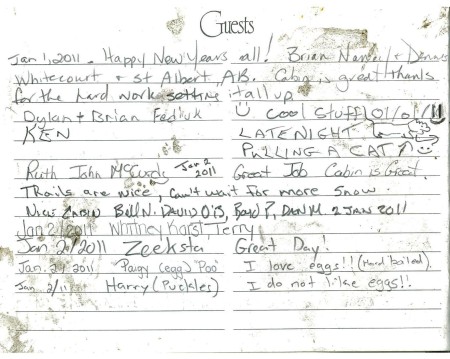 Guests
Jan 1, 2011. Happy New Years all! Brian
Whitecourt + St Albert, AB. Cabin is great thanks
for the hard work setting it all up
Dylan + Brian Fedluk cool stuff! 01/01/11
KEN LATE NIGHT
PULLING A CAT
Ruth John McCurdy Jan 2 2011 Great Job Cabin is Great.
Trails are nice, Can't wait for more snow.
Bill N. DAVID O'B, Boyd P, DAN M. 2 JAN 2011
Jan 2/2011 Whitney Karst Terry
Jan 2/2011 Zeeksta Great Day!
Jan. 2/2011 "Paigy (egg) Poo" I love eggs!! (Hard boiled).
Jan. 2/11 Harry (Puckles) I do not like eggs!!